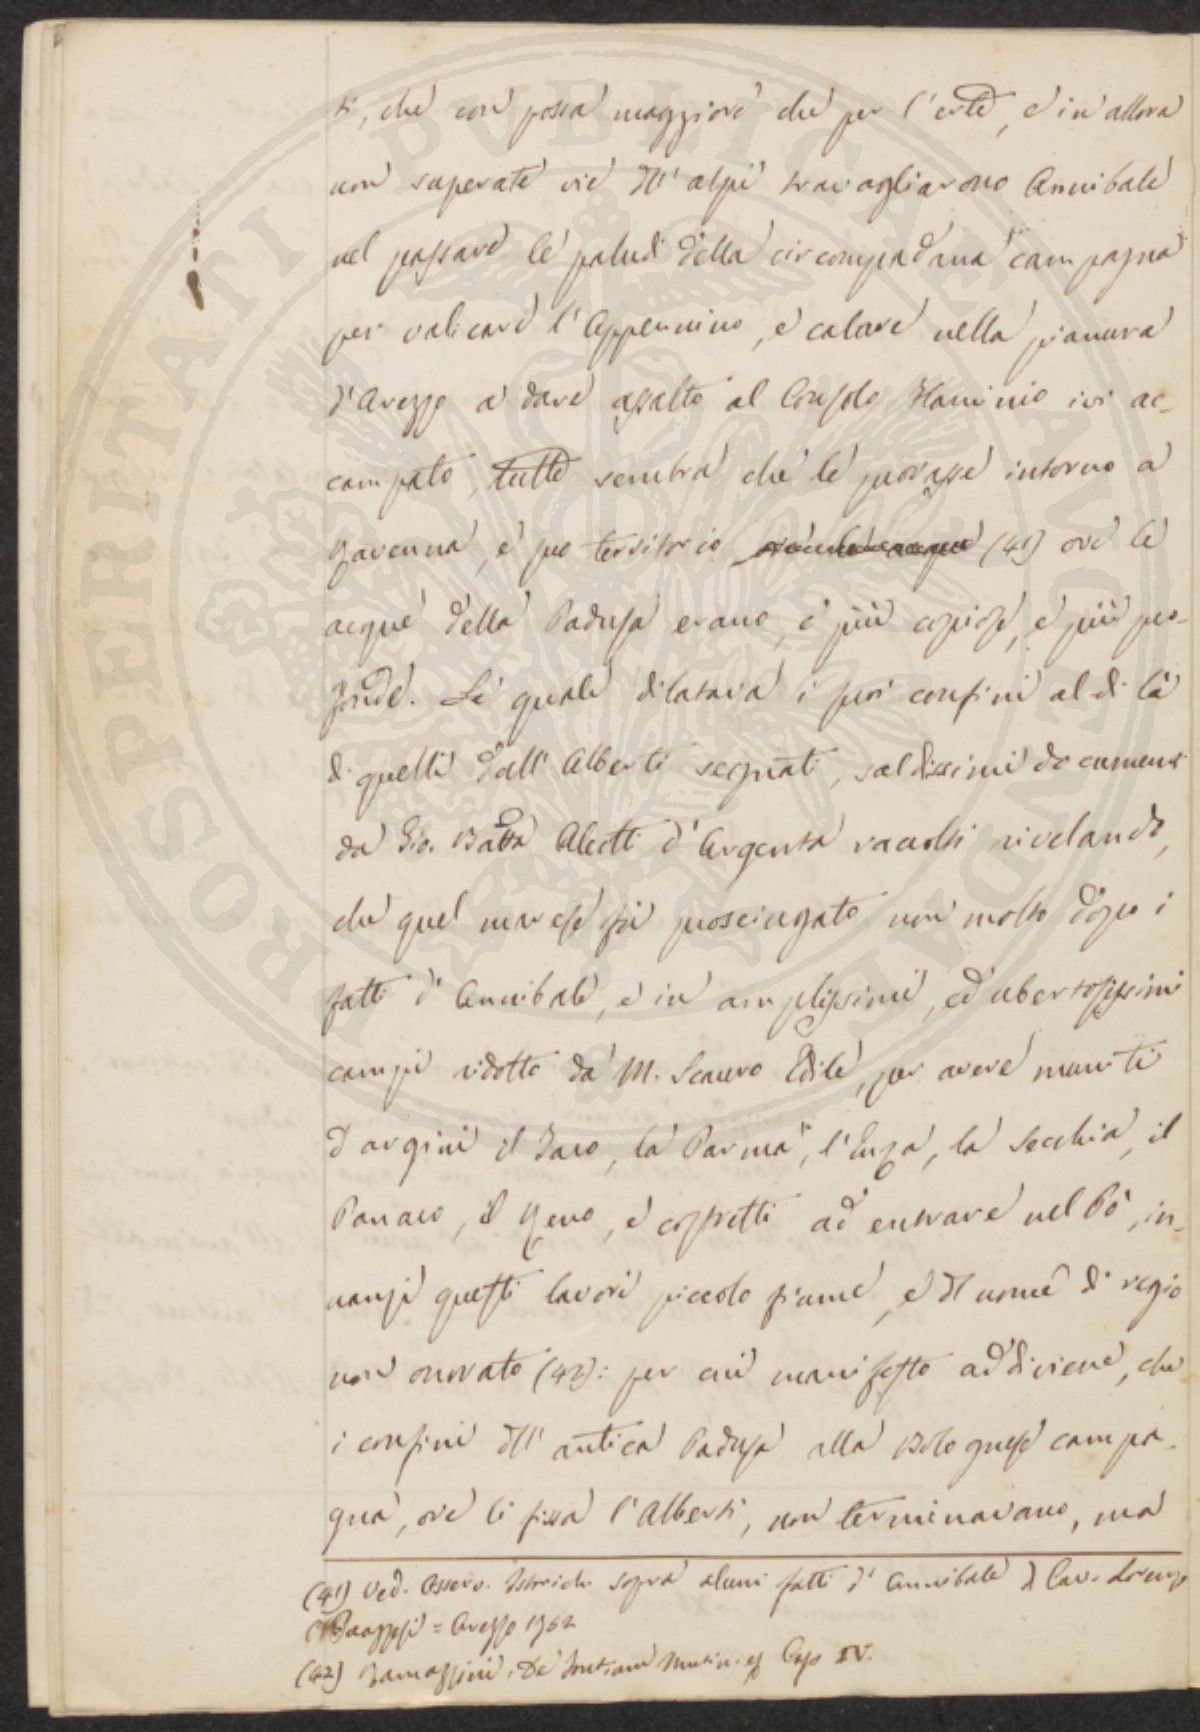 ti, che con possa maggiore che per l'erte, e in allora
non superate vie dell'alpi travagliarono Annibale
nel passare le paludi della circompadana campagna
per valicare l'Appennino, e calare nella pianura
d'Arezzo a dare assalto al Consolo Flaminio ivi ac-
campato, tutto sembra che le provasse intorno a
Ravenna, e suo territorio (41) ove le
acque della Padusa erano, e più copiose, e più pro-
fonde. Le quali dilatava i suoi confini al di là
di quelli dall'Alberti segnati, saldissimi documenti
da Gio. Batta Aleotti d'Argenta raccolti rivelando,
che quel marese fu prosciugato non molto dopo i
fatti d'Annibale, e in amplissimi, ed ubertosissimi
campi ridotto da M. Scauro Edile, per avere muniti
d'argini il Taro, la Parma, l'Enza, la Secchia, il
Panaro, il Reno, e costretti ad entrare nel Pò, in-
nanzi questi lavori piccolo fiume, e del nome di regio
non onorato (42): per cui manifesto addiviene, che
i confini dell'antica Padusa alla Bolognese campa-
gna, ove li fissa l'Alberti, non terminavano, ma
(41) Ved. Osserv. Istoriche sopra alcuni fatti d'Annibale del Cav. Lorenzo
Guazzesi = Arezzo 1752
(42) Ramazzini: De Cap IV.
PROSPERITATI PUBLICAE